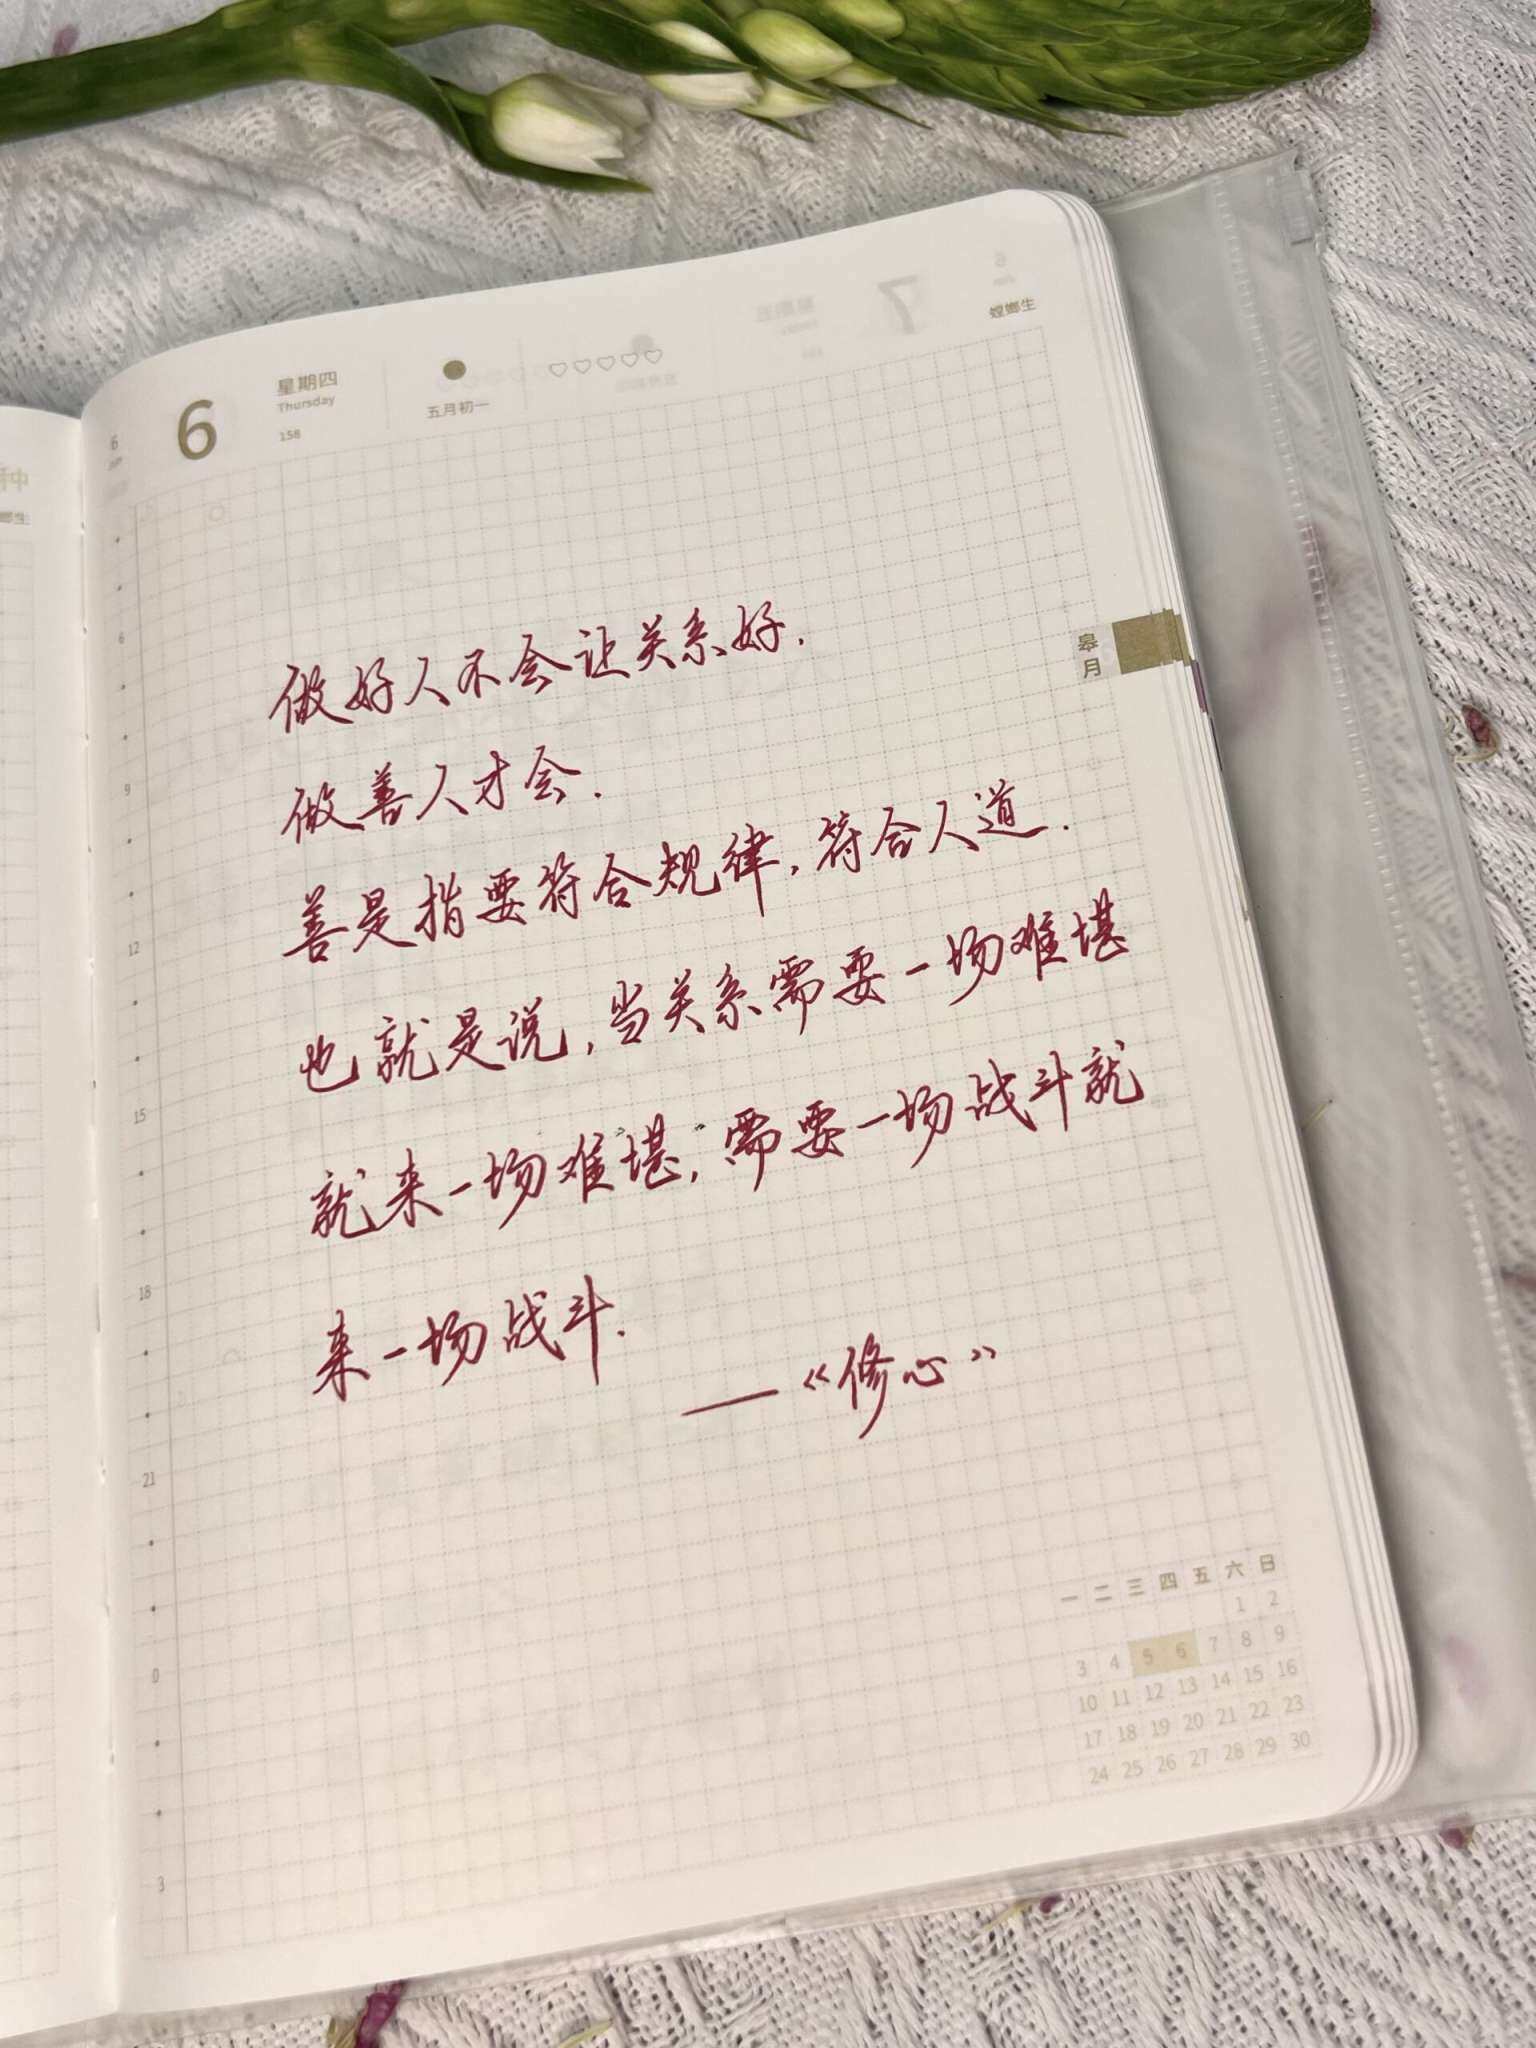 6
Jun
6
星期四
Thursday
158
五月初一
螳螂生
种
螂生
皋月
6
9
12
15
18
21
0
3
做好人不会让关系好.
做善人才会.
善是指要符合规律,符合人道.
也就是说,当关系需要一场难堪
就来一场难堪,需要一场战斗就
来一场战斗.
——《修心》
一 二 三 四 五 六 日
1 2
3 4 5 6 7 8 9
10 11 12 13 14 15 16
17 18 19 20 21 22 23
24 25 26 27 28 29 30